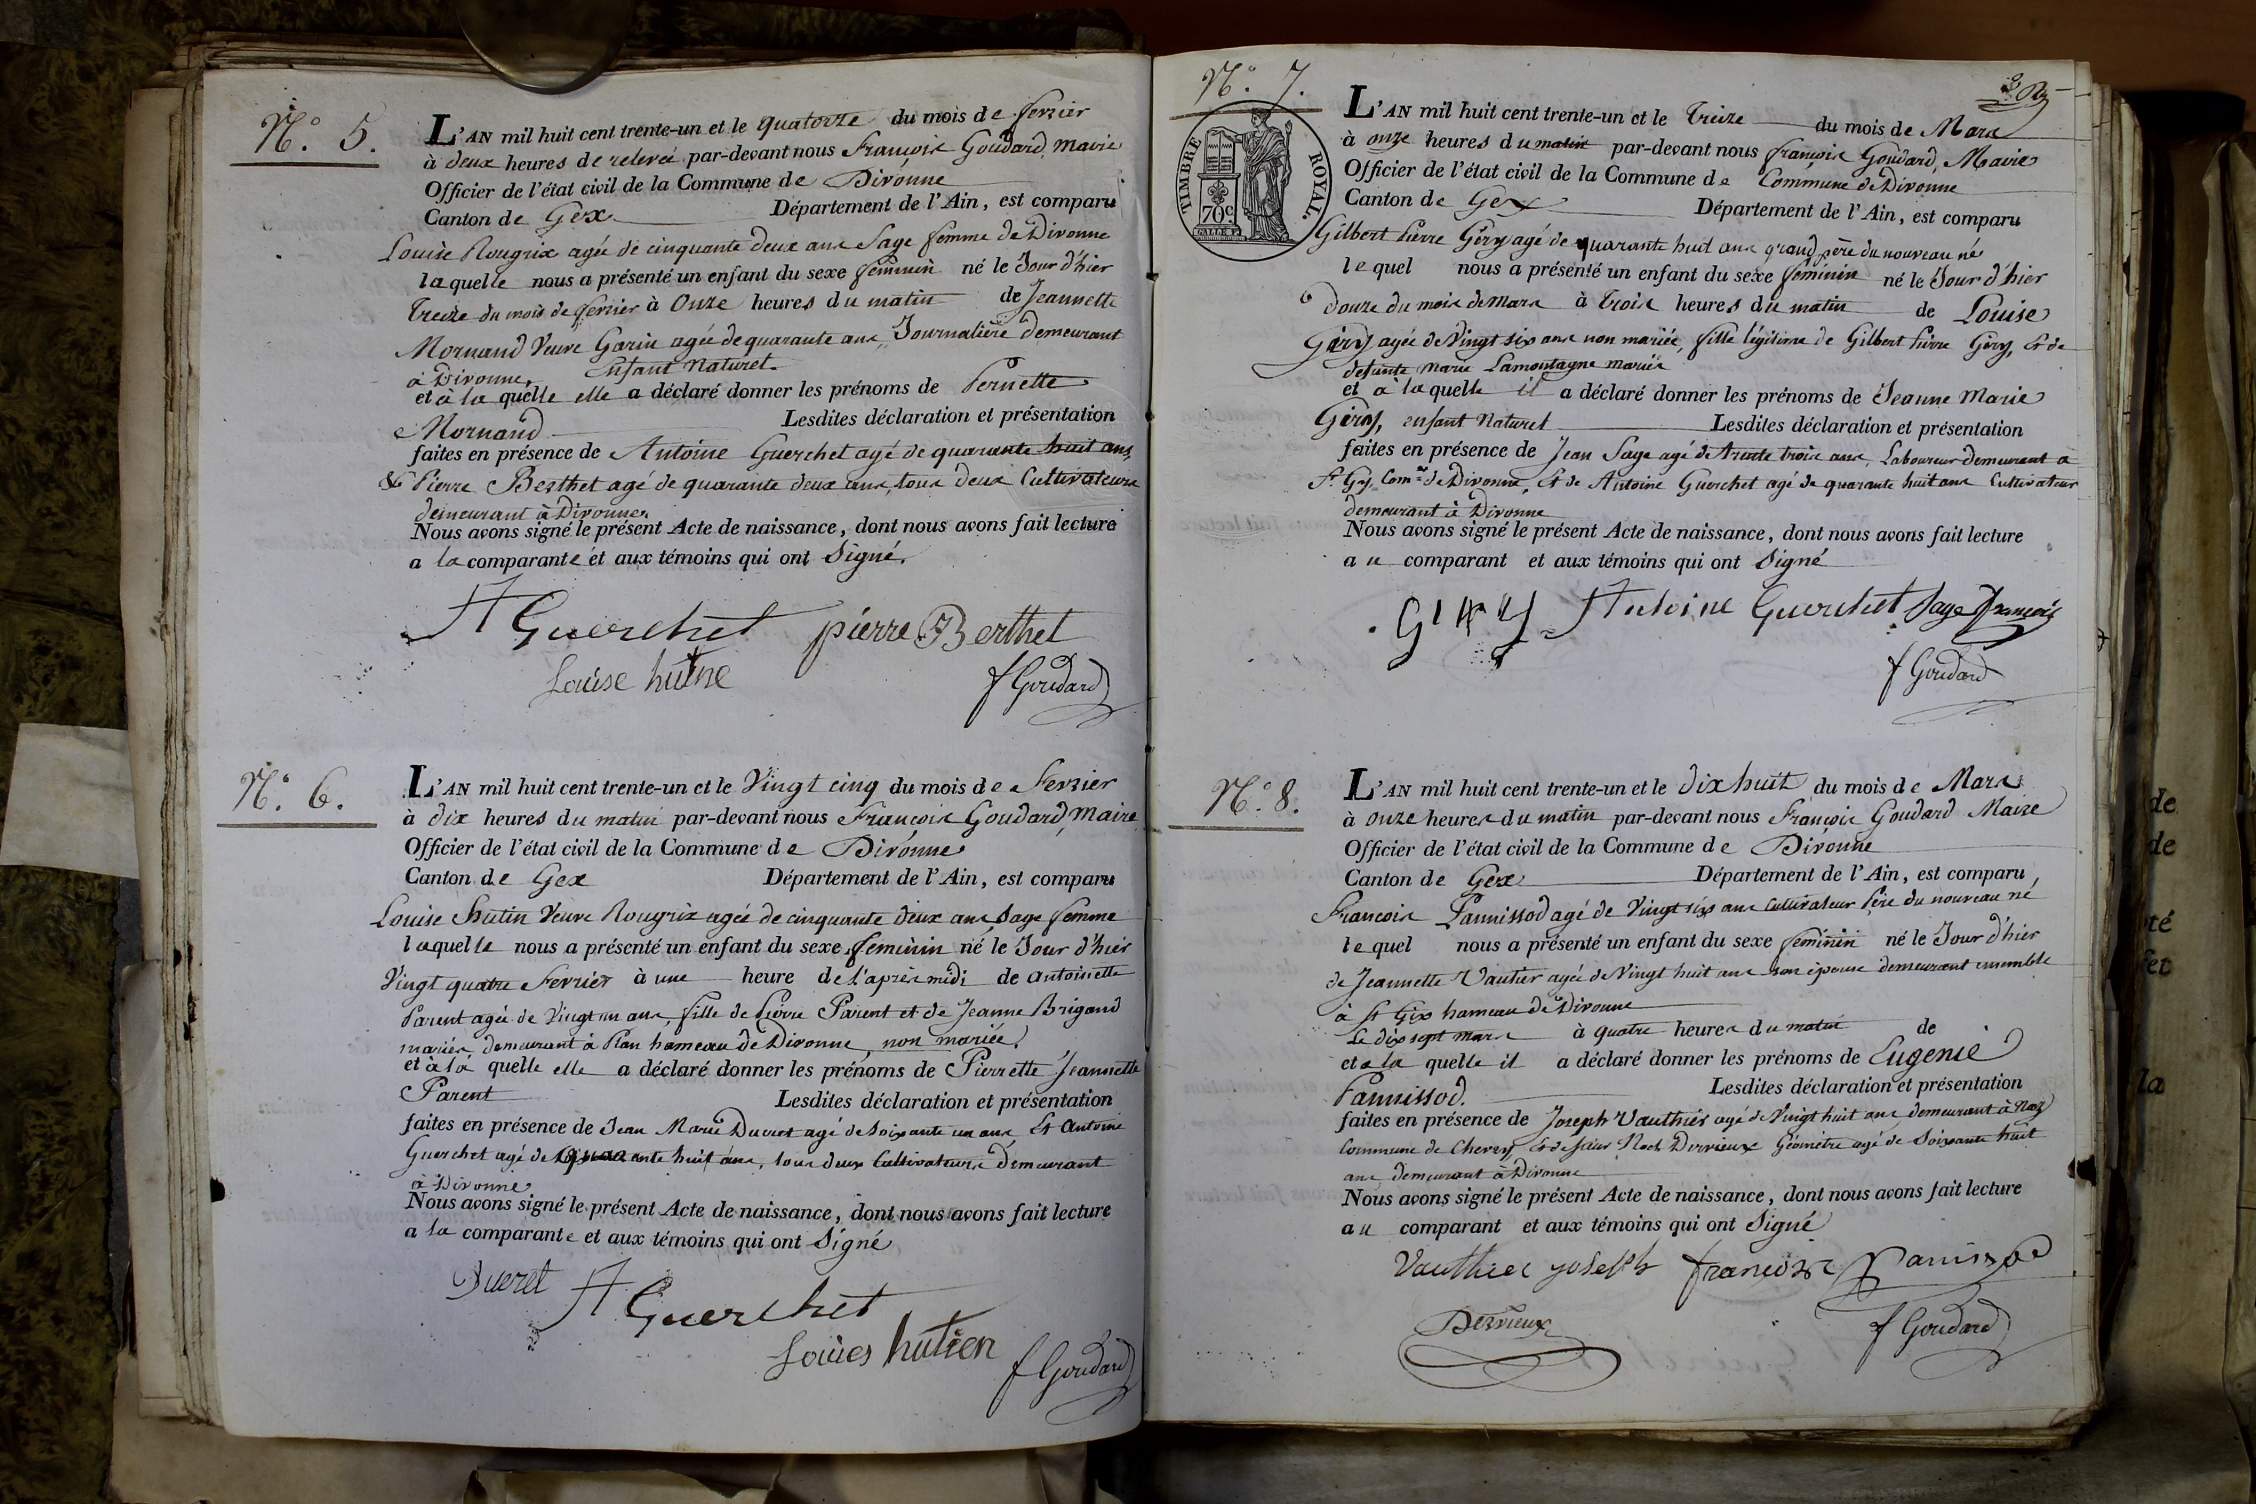 N.° 5.
L'AN mil huit cent trente-un et le quatorze du mois de fevrier
à deux heures de relevée par-devant nous François Goudard, Maire
Officier de l'état civil de la Commune de Divonne
Canton de Gex Département de l'Ain, est comparu
Louise Rougrix agée de cinquante deux ans Sage femme de Divonne
laquelle nous a présenté un enfant du sexe feminin né le Jour d'hier
treize du mois de fevrier à Onze heures du matin de Jeannette
Mornand Veuve Garin agée de quarante ans, Journalière demeurant
à Divonne, Enfant Naturel.
et à la quelle elle a déclaré donner les prénoms de Pernette
Mornand Lesdites déclaration et présentation
faites en présence de Antoine Guerchet agé de quarante huit ans
& Pierre Berthet agé de quarante deux ans, tous deux Cultivateurs
demeurant à Divonne.
Nous avons signé le présent Acte de naissance, dont nous avons fait lecture
a la comparante et aux témoins qui ont Signé.
A Guerchet pierre Berthet
Louise hutne
f Goudard
N.° 6.
L'AN mil huit cent trente-un et le Vingt cinq du mois de Fevrier
à dix heures du matin par-devant nous François Goudard, Maire
Officier de l'état civil de la Commune de Divonne
Canton de Gex Département de l'Ain, est comparu
Louise Hutin Veuve Rougrix agée de cinquante deux ans, Sage femme
laquelle nous a présenté un enfant du sexe feminin né le Jour d'hier
Vingt quatre Fevrier à une heure de l'après midi de antoinette
Parent agée de Vingt un ans, fille de Pierre Parent et de Jeanne Brigand
mariés, demeurant à Plan hameau de Divonne, non mariée.
et à la quelle elle a déclaré donner les prénoms de Pierrette Jeannette
Parent Lesdites déclaration et présentation
faites en présence de Jean Marie Ducret agé de soixante un ans, Et Antoine
Guerchet agé de quarante huit ans, tous deux Cultivateurs demeurant
à Divonne
Nous avons signé le présent Acte de naissance, dont nous avons fait lecture
a la comparante et aux témoins qui ont Signé
Ducret A Guerchet
Louies hutien f Goudard
N.° 7.
TIMBRE ROYAL.
70c
L'AN mil huit cent trente-un et le treize du mois de Mars
à onze heures du matin par-devant nous françois Goudard, Maire
Officier de l'état civil de la Commune de Commune de Divonne
Canton de Gex Département de l'Ain, est comparu
Gilbert Pierre Géry agé de quarante huit ans grand père du nouveau né
lequel nous a présenté un enfant du sexe féminin né le Jour d'hier
douze du mois de mars à trois heures du matin de Louise
Géry agée de Vingt six ans non mariée, fille légitime de Gilbert Pierre Géry, Et de
defunte Marie Lamontagne mariés
et à la quelle il a déclaré donner les prénoms de Jeanne Marie
Géry, enfant Naturel Lesdites déclaration et présentation
faites en présence de Jean Sage agé de trente trois ans, Laboureur demeurant à
St Gy, Com.ne de Divonne, Et de Antoine Guerchet agé de quarante huit ans Cultivateur
demeurant à Divonne
Nous avons signé le présent Acte de naissance, dont nous avons fait lecture
au comparant et aux témoins qui ont Signé
Antoine Guerchet Sage françois
f Goudard
N.° 8.
L'AN mil huit cent trente-un et le dix huit du mois de Mars
à onze heures du matin par-devant nous François Goudard Maire
Officier de l'état civil de la Commune de Divonne
Canton de Gex Département de l'Ain, est comparu
François Pannissod agé de Vingt six ans Cultivateur Père du nouveau né
lequel nous a présenté un enfant du sexe feminin né le Jour d'hier
de Jeannette Vautier agée de Vingt huit ans son épouse demeurant ensemble
à St Gix hameau de Divonne
Le dix sept mars à quatre heures du matin de
et a la quelle il a déclaré donner les prénoms de Eugenie
Pannissod. Lesdites déclaration et présentation
faites en présence de Joseph Vauthier agé de Vingt huit ans, demeurant à Naz
Commune de Chevry, Et de Sieur Derrieux Géomètre agé de Soixante huit
ans demeurant à Divonne
Nous avons signé le présent Acte de naissance, dont nous avons fait lecture
au comparant et aux témoins qui ont Signé
Vauthier joseph françois Panissod
Derrieux
f Goudard
de
de
té
et
la